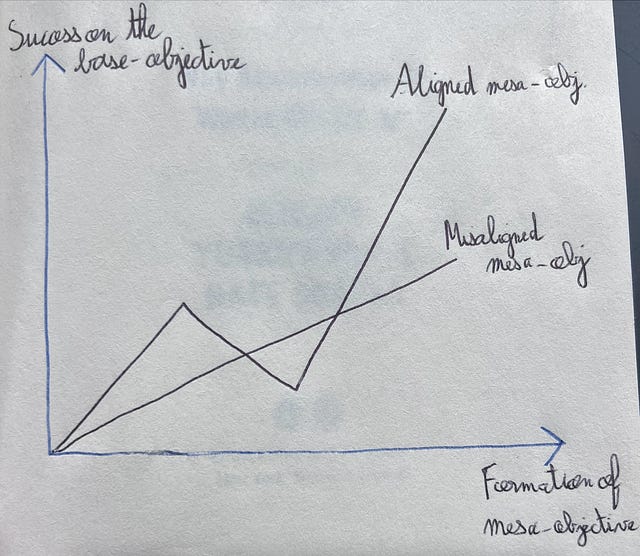 Success on the
base-objective
Aligned mesa-obj.
Misaligned
mesa-obj
Formation of
mesa-objective